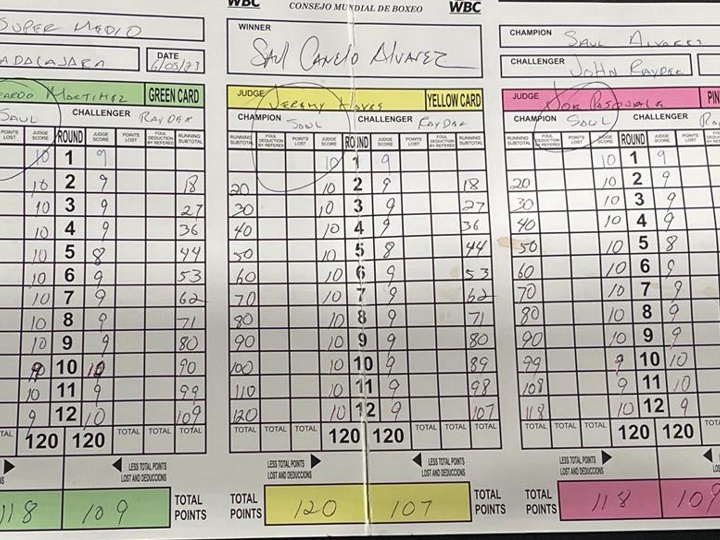 WBC CONSEJO MUNDIAL DE BOXEO WBC
SUPER MEDIO
DATE
6/05/23
MARTINEZ GREEN CARD
SAUL CHALLENGER RAYDER
POINTS LOST JUDGE SCORE ROUND JUDGE SCORE POINTS LOST FOUL DEDUCTION BY REFEREE RUNNING SUBTOTAL
10 1 9
10 2 9 18
10 3 9 27
10 4 9 36
10 5 8 44
10 6 9 53
10 7 9 62
10 8 9 71
10 9 9 80
10 90
10 11 9 99
9 12 10 109
TOTAL 120 120 TOTAL TOTAL TOTAL
LESS TOTAL POINTS LOST AND DEDUCCIONS
118 109 TOTAL POINTS
WINNER
SAUL CANELO ALVAREZ
JUDGE JEREMY HAYES YELLOW CARD
CHAMPION SAUL CHALLENGER RAYDER
RUNNING SUBTOTAL FOUL DEDUCTION BY REFEREE POINTS LOST JUDGE SCORE ROUND JUDGE SCORE POINTS LOST FOUL DEDUCTION BY REFEREE RUNNING SUBTOTAL
10 1 9
20 10 2 9 18
30 10 3 9 27
40 10 4 9 36
50 10 5 8 44
60 10 6 9 53
70 10 7 9 62
80 10 8 9 71
90 10 9 9 80
100 10 10 9 89
110 10 11 9 98
120 10 12 9 107
TOTAL TOTAL TOTAL 120 120 TOTAL TOTAL TOTAL
LESS TOTAL POINTS LOST AND DEDUCCIONS LESS TOTAL POINTS LOST AND DEDUCCIONS
TOTAL POINTS 120 107 TOTAL POINTS
CHAMPION SAUL ALVAREZ
CHALLENGER JOHN RAYDER
JUDGE
CHAMPION SAUL CHALLENGER
RUNNING SUBTOTAL FOUL DEDUCTION BY REFEREE POINTS LOST JUDGE SCORE ROUND JUDGE SCORE POINTS LOST
10 1 9
20 10 2 9
30 10 3 9
40 10 4 9
50 10 5 8
60 10 6 9
70 10 7 9
80 10 8 9
90 10 9 9
99 9 10 10
108 9 11 10
118 10 12 9
TOTAL TOTAL TOTAL 120 120 TOTAL
LESS TOTAL POINTS LOST AND DEDUCCIONS
TOTAL POINTS 118 109